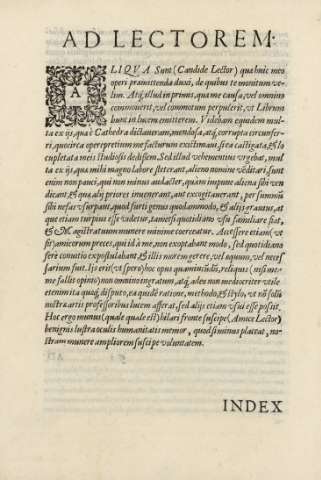 AD LECTOREM:
ALIQVA Sunt (Candide Lector) quæ huic meo
operi præmittenda duxi, de quibus te monitum ve-
lim. Atq; illud in primis, quæ me causa, vel omnino
commouerit, vel commotum perpulerit, vt Librum
hunc in lucem emitterem. Videbam equidem mul-
ta ex ijs, quæ è Cathedra dictaueram, mendosa, atq; corrupta circunfer-
ri, quocirca operæpretium me facturum existimaui, si ea castigata, & lo
cupletata meis studiosis dedissem. Sed illud vehementius vrgebat, mul
ta ex ijs, quæ mihi magno labore steterant, alieno nomine véditari. Sunt
enim non pauci, qui non minus audacter, quàm impune aliena sibi ven
dicant, & quæ alij priores inuenerant, aut excogitauerant, per summum
sibi nefas vsurpant, quod furti genus quodammodo, & alijs gratum, at
que etiam turpius esse videtur, tametsi quotidiano vsu familiare fiat,
& Magistratuum munere minime coerceatur. Accessere etiam
amicorum preces, qui id à me, non exoptabant modo, sed quotidiano
ferè conuitio expostulabant, & illis morem gerere, vel æquum, vel neces
sarium fuit. Iis erit (vt spero) hoc opus quamiucūdū, reliquis (nisi me
me fallit opinio) non omnino ingratum, atq; adeo non mediocriter vtile
etenim ita quæq; disputo, ea quidē ratione, methodo, & stylo, vt nō solū
nostræ artis professoribus lucem afferat, sed alijs etiam vsui esse possit,
Hoc ergo munus (quale quale est) hilari fronte suscipe (Amice Lector)
benignis lustra oculis humanitatis memor, quod si minus placeat, no-
stram munere ampliorem suscipe voluntatem.
INDEX